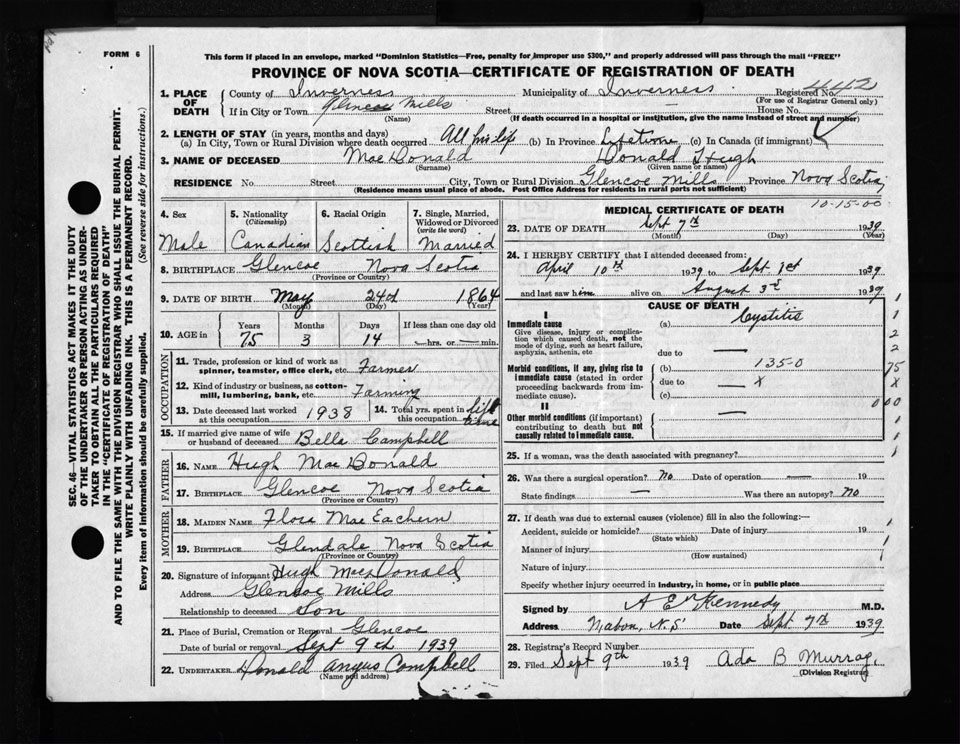 FORM 6
This form if placed in an envelope, marked "Dominion Statistics—Free, penalty for improper use $300," and properly addressed will pass through the mail "FREE"
PROVINCE OF NOVA SCOTIA—CERTIFICATE OF REGISTRATION OF DEATH
442
1. PLACE OF DEATH
County of Inverness Municipality of Inverness Registered No.
(For use of Registrar General only)
If in City or Town Glencoe Mills Street House No.
(Name) (If death occurred in a hospital or institution, give the name instead of street and number)
2. LENGTH OF STAY (in years, months and days)
(a) In City, Town or Rural Division where death occurred All his life (b) In Province Lifetime (c) In Canada (if immigrant)
3. NAME OF DECEASED MacDonald Donald Hugh
(Surname) (Given name or names)
RESIDENCE No. Street City, Town or Rural Division Glencoe Mills Province Nova Scotia
(Residence means usual place of abode. Post Office Address for residents in rural parts not sufficient)
4. Sex Male
5. Nationality (Citizenship) Canadian
6. Racial Origin Scottish
7. Single, Married, Widowed or Divorced (write the word) Married
8. BIRTHPLACE Glencoe Nova Scotia
(Province or Country)
9. DATE OF BIRTH May 24th 1864
(Month) (Day) (Year)
10. AGE in Years 75 Months 3 Days 14 If less than one day old
hrs. or min.
OCCUPATION
11. Trade, profession or kind of work as spinner, teamster, office clerk, etc. Farmer
12. Kind of industry or business, as cotton-mill, lumbering, bank, etc. Farming
13. Date deceased last worked at this occupation 1938
14. Total yrs. spent in this occupation life time
15. If married give name of wife or husband of deceased Bella Campbell
FATHER
16. NAME Hugh MacDonald
17. BIRTHPLACE Glencoe Nova Scotia
(Province or Country)
MOTHER
18. MAIDEN NAME Flora MacEachern
19. BIRTHPLACE Glendale Nova Scotia
(Province or Country)
20. Signature of informant Hugh MacDonald
Address Glencoe Mills
Relationship to deceased Son
21. Place of Burial, Cremation or Removal Glencoe
Date of burial or removal Sept 9th 1939
22. UNDERTAKER Donald Angus Campbell
(Name and address)
10-15-00
MEDICAL CERTIFICATE OF DEATH
23. DATE OF DEATH Sept 7th 1939
(Month) (Day) (Year)
24. I HEREBY CERTIFY that I attended deceased from:
April 10th 1939 to Sept 1st 1939
and last saw him alive on August 3rd 1939
CAUSE OF DEATH
I
Immediate cause (a) Cystitis
Give disease, injury or complication which caused death, not the mode of dying, such as heart failure, asphyxia, asthenia, etc
due to —
Morbid conditions, if any, giving rise to immediate cause (stated in order proceeding backwards from immediate cause).
(b) 135-0
due to — X
(c)
II
Other morbid conditions (if important) contributing to death but not causally related to immediate cause. —
1
1
2
2
75
X
000
1
1
1
25. If a woman, was the death associated with pregnancy?
26. Was there a surgical operation? No Date of operation — 19
State findings — Was there an autopsy? No
27. If death was due to external causes (violence) fill in also the following:—
Accident, suicide or homicide? Date of injury 19
(State which)
Manner of injury
(How sustained)
Nature of injury
Specify whether injury occurred in industry, in home, or in public place
Signed by A E Kennedy M.D.
Address Mabou, N.S. Date Sept 7th 1939
28. Registrar's Record Number
29. Filed Sept 9th 1939 Ada B Murray
(Division Registrar)
SEC. 46—VITAL STATISTICS ACT MAKES IT THE DUTY
OF THE UNDERTAKER OR PERSON ACTING AS UNDER-
TAKER TO OBTAIN ALL THE PARTICULARS REQUIRED
IN THE "CERTIFICATE OF REGISTRATION OF DEATH"
AND TO FILE THE SAME WITH THE DIVISION REGISTRAR WHO SHALL ISSUE THE BURIAL PERMIT.
WRITE PLAINLY WITH UNFADING INK. THIS IS A PERMANENT RECORD.
Every item of information should be carefully supplied. (See reverse side for instructions.)